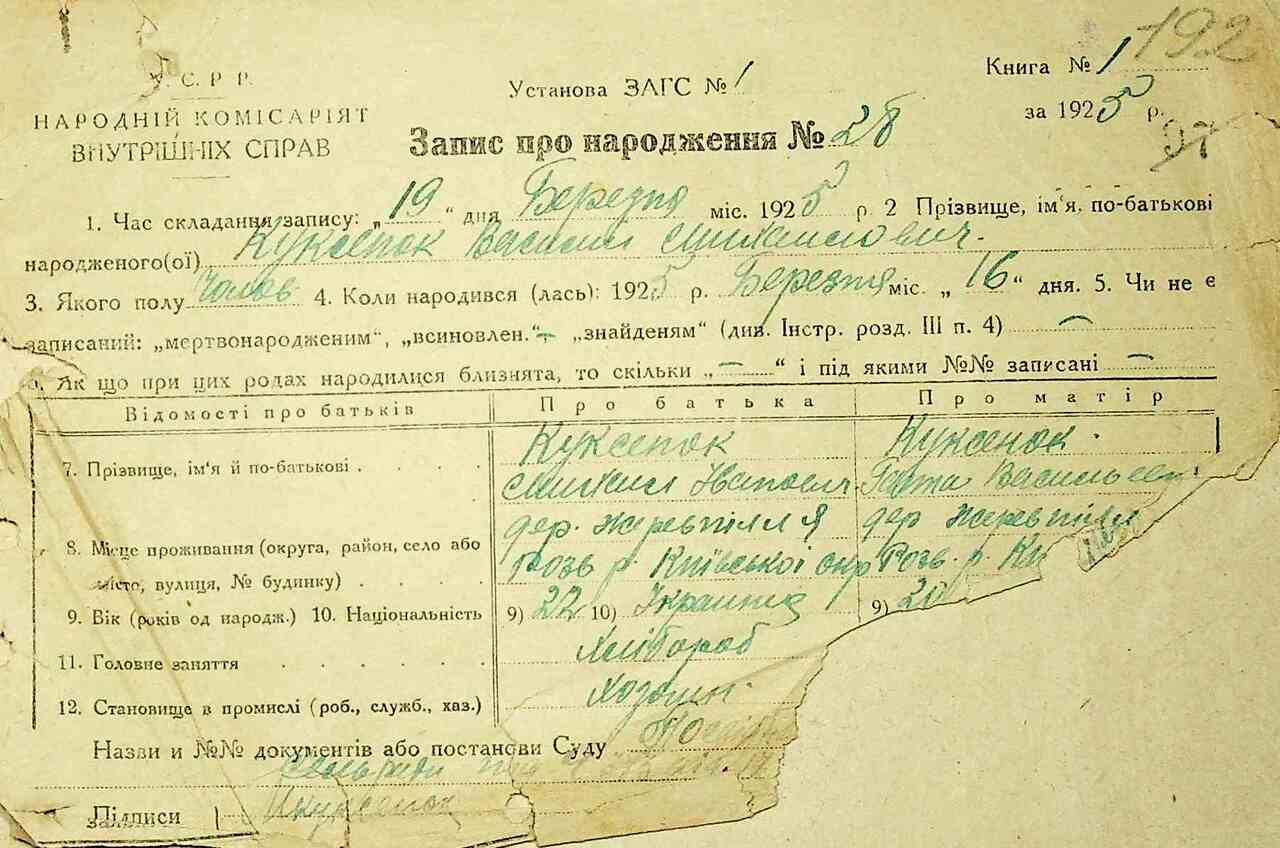 192
У. С. Р. Р.
НАРОДНІЙ КОМІСАРІЯТ
ВНУТРІШНІХ СПРАВ
Установа ЗАГС № 1
Книга № 1
за 1925 р.
37
Запис про народження № 28
1. Час складання запису: „19“ дня Березня міс. 1925 р. 2 Прізвище, ім‘я, по-батькові
народженого(ої) Куксенок Василий Михайлович.
3. Якого полу Чолов 4. Коли народився (лась): 1925 р. Березня міс. „16“ дня. 5. Чи не є
записаний: „мертвонародженим“, „всиновлен.“ — „знайденям“ (див. Інстр. розд. III п. 4) —
6. Як що при цих родах народилися близнята, то скільки „—“ і під якими №№ записані —
Відомості про батьків Про батька Про матір
7. Прізвище, ім‘я й по-батькові . . . . Куксенок Куксенок.
Михаил Васильев
дер. Жеревпілля дер Жеревпілля
8. Місце проживання (округа, район, село або
місто, вулиця, № будинку) . . . . Розв р. Київської окр Розв. р. Ки
9. Вік (років од народж.) 10. Національність 9) 22 10) 9) 20
11. Головне заняття . . . . . Хлібороб
12. Становище в промислі (роб., служб., хаз.) Хозяин.
Назви и №№ документів або постанови Суду
Сельради
Підписи Куксенок